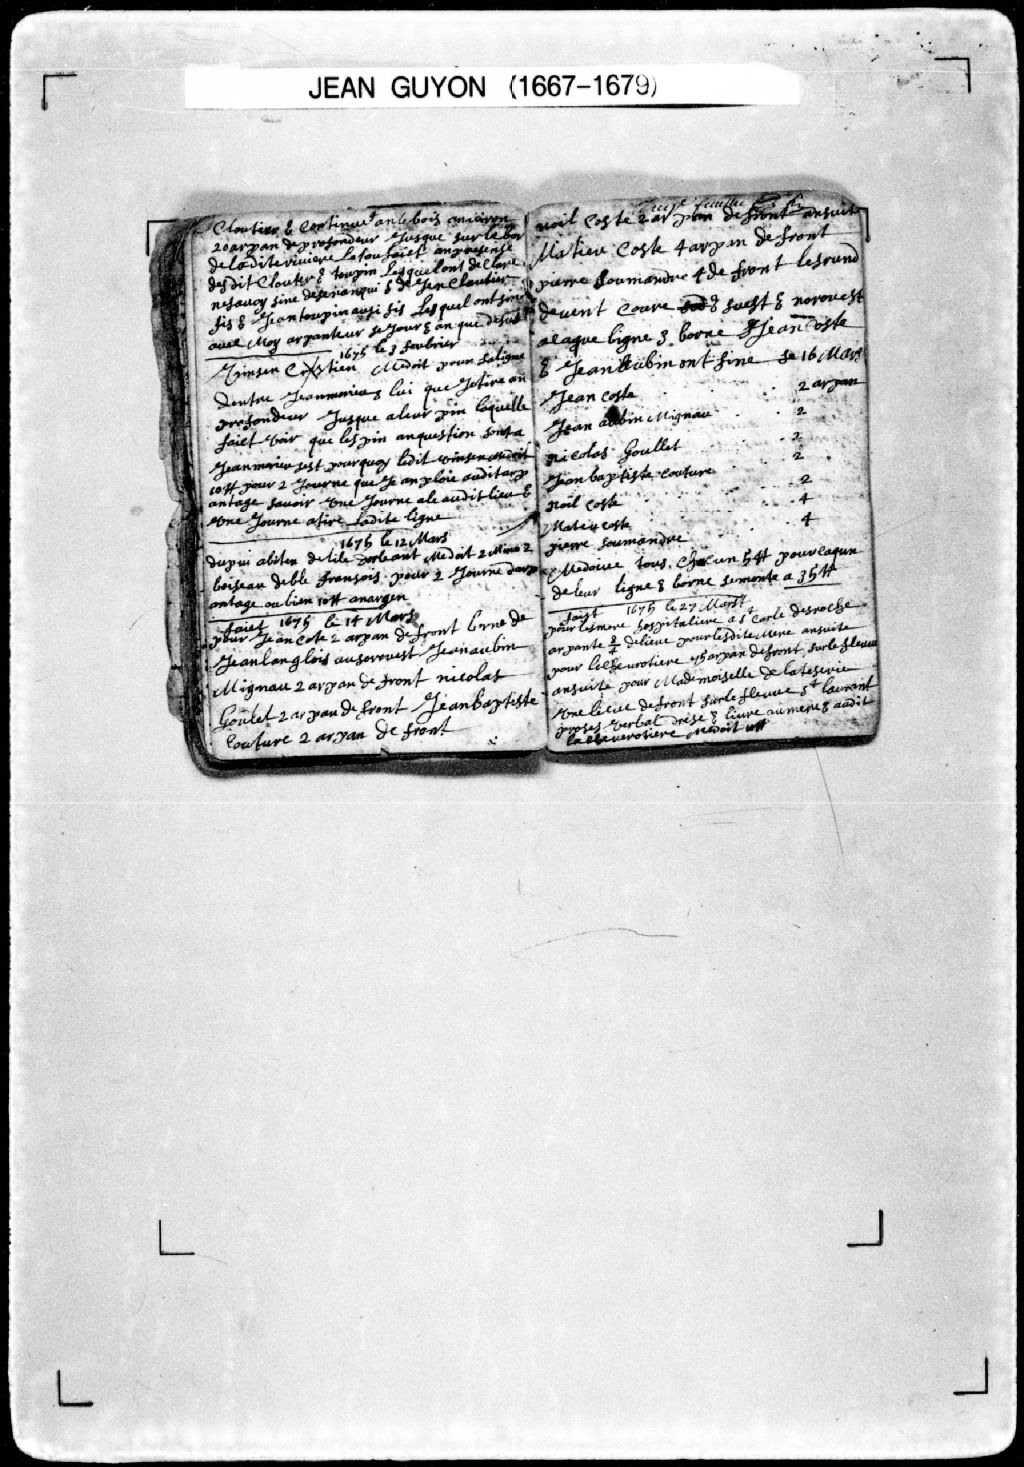 JEAN GUYON (1667-1679)
Cloutier & Continue anlebois anviron
20 arpan de profondeur Jusque sur le bor
de ladite riviere Le tou faict anpresense
desdit Cloutier & toupin Lesquel ont declare
nesavoy sine de seman qui & de Jen Cloutier
fis & Jean toupin ausi fis Lesquel ont sine
avec Moy arpanteur se Jour & an que desus
1675 le 3 feubrier
Vinsen Crestien Medoit pour saligne
dentre Jeanmerieu & lui que Jetire an
profondeur Jusque aleur pin laquelle
faict voir que les pin anquestion sont a
Jeanmerieu sest pourquoy ledit vinsen medoit
10tt pour 2 Journe que Je anploie audit arp
antage savoir une Journe ale audit lieu &
une Journe atire ladite ligne
1675 le 12 Mars
dupui abiten de lile dorleant Medoit 2 Mino 2
boiseau de ble fransois pour 2 Journe darp
antage ou bien 10tt anargen
faict 1675 le 14 Mars
pour Jean Cote 2 arpan de front borne de
Jeanlanglois ausorouest Jeanaubin
Mignau 2 arpan de front nicolas
Goulet 2 arpan de front Jeanbaptiste
Couture 2 arpan de front
noil Coste 2 arpan de front ansuit
Matieu Coste 4 arpan de front
pierre Soumandre 4 de front lesrund
devent Coure & suest & norouest
alaque ligne & borne & Jean Coste
& Jean Aubin ont sine se 16 Mars
Jean Coste 2 arpan
Jean aubin Mignau 2
nicolas Goullet 2
Jean baptiste couture 2
noil Coste 2
Mateu coste 4
pierre soumandre 4
Medoive tous Checun 5tt pour caqun
de leur ligne & borne semonte a 35tt
faist 1675 le 27 Marst
pour lesmere hospitaliere a st Carle desroche
arpante 3/4 de lieue pour lesdite Mere ansuite
pour laChevrotiere arpan de front sur le fleuve
ansuite pour Mademoiselle de lateserie
une lieue defront sur le fleuve st laurant
proses verbal drese & livre aumere & audit
la Cheverotiere Medoit tt